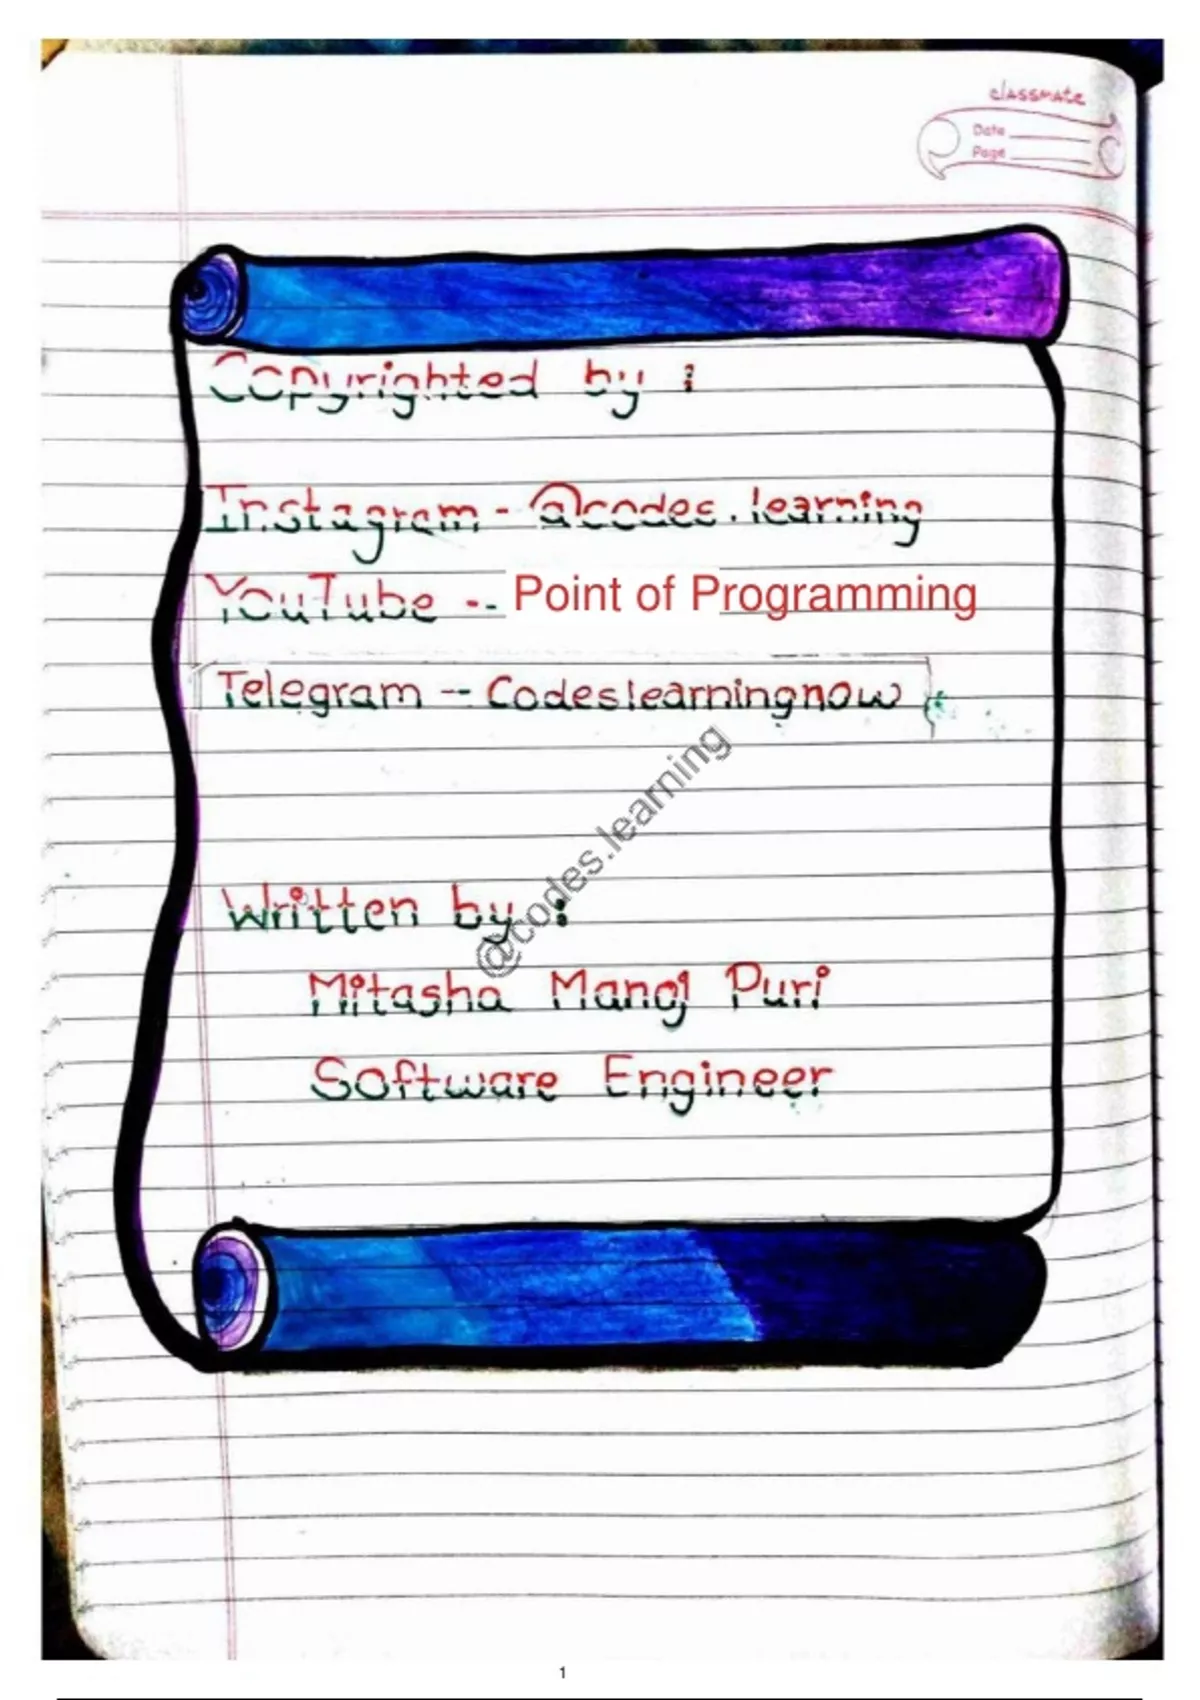 classmate
Date
Page
Copyrighted by :
Instagram - @codes.learning
YouTube -- Point of Programming
Telegram -- Codeslearningnow
@codes.learning
Written by :
Mitasha Manoj Puri
Software Engineer
1